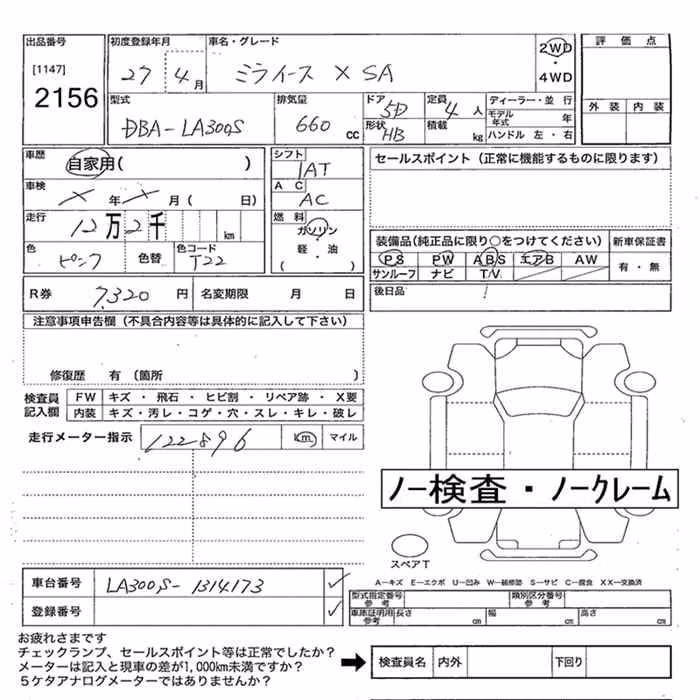 出品番号 初度登録年月 車名・グレード 評価点
[1147] 27 4月 ミライース X SA 2WD ・ 4WD
2156 外装 内装
型式 排気量 ドア 5D 定員 4人 ディーラー・並行
DBA-LA300S 660cc 形状 HB 積載 kg モデル年式 年
ハンドル 左・右
車歴 自家用( ) シフト 1AT セールスポイント (正常に機能するものに限ります)
車検 X年X月( 日) AC AC
走行 12万2千 km 燃料 ガソリン 軽・油 ( )
色 ピンク 色替 色コード T22
装備品(純正品に限り○をつけてください) 新車保証書
PS PW ABS エアB AW 有・無
サンルーフ ナビ T/V
R券 7,320円 名変期限 月 日 後日品
注意事項申告欄 (不具合内容等は具体的に記入して下さい)
修復歴 有 (箇所 )
検査員記入欄 FW キズ・飛石・ヒビ割・リペア跡・X要
内装 キズ・汚レ・コゲ・穴・スレ・キレ・破レ
走行メーター指示 122896 km マイル
ノー検査・ノークレーム
スペアT
A-キズ E-エクボ U-凹み W-補修跡 S-サビ C-腐食 XX-交換済
車台番号 LA300S-1314173 ✓
型式指定番号 参考 類別区分番号 参考
登録番号 ✓
車庫証明用 参考 長さ cm 幅 cm 高さ cm
お疲れさまです
チェックランプ、セールスポイント等は正常でしたか?
メーターは記入と現車の差が1,000km未満ですか?
5ケタアナログメーターではありませんか?
検査員名 内外 下回り